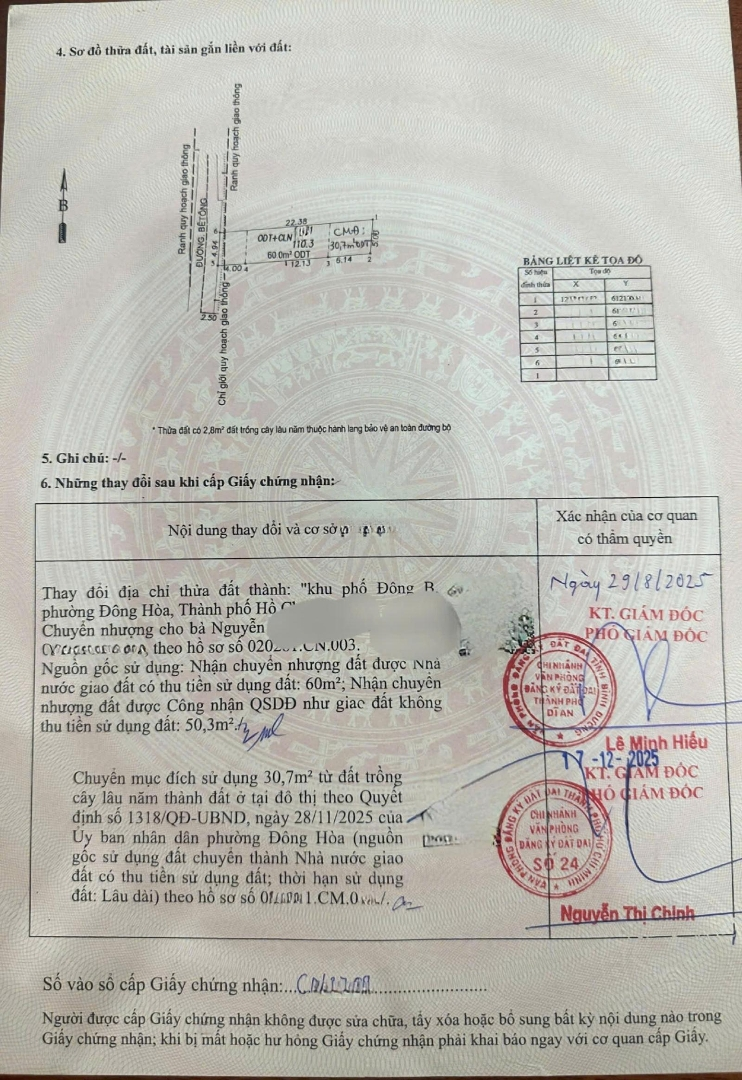 4. Sơ đồ thửa đất, tài sản gắn liền với đất:
Ranh quy hoạch giao thông
Ranh quy hoạch giao thông
ĐƯỜNG BÊTÔNG
Chỉ giới quy hoạch giao thông
B
22.38
1
ODT+CLN
110.3
60.0m² ODT
CMĐ:
30,7m² ODT
5.00
6
4.94
5
4.00
4
12.13
3
6.14
2
2.50
BẢNG LIỆT KÊ TỌA ĐỘ
Số hiệu đỉnh thửa
Tọa độ
X
Y
1
2
3
4
5
6
1
* Thửa đất có 2,8m² đất trồng cây lâu năm thuộc hành lang bảo vệ an toàn đường bộ
5. Ghi chú: -/-
6. Những thay đổi sau khi cấp Giấy chứng nhận:
Nội dung thay đổi và cơ sở
Xác nhận của cơ quan
có thẩm quyền
Thay đổi địa chỉ thửa đất thành: "khu phố Đông B
phường Đông Hòa, Thành phố Hồ
Chuyển nhượng cho bà Nguyễn
theo hồ sơ số .CN.003.
Nguồn gốc sử dụng: Nhận chuyển nhượng đất được Nhà
nước giao đất có thu tiền sử dụng đất: 60m²; Nhận chuyển
nhượng đất được Công nhận QSDĐ như giao đất không
thu tiền sử dụng đất: 50,3m².
Ngày 29/8/2025
KT. GIÁM ĐỐC
PHÓ GIÁM ĐỐC
VĂN PHÒNG ĐĂNG KÝ ĐẤT ĐAI TỈNH BÌNH DƯƠNG
CHI NHÁNH
VĂN PHÒNG
ĐĂNG KÝ ĐẤT ĐAI
THÀNH PHỐ
DĨ AN
Lê Minh Hiếu
Chuyển mục đích sử dụng 30,7m² từ đất trồng
cây lâu năm thành đất ở tại đô thị theo Quyết
định số 1318/QĐ-UBND, ngày 28/11/2025 của
Ủy ban nhân dân phường Đông Hòa (nguồn
gốc sử dụng đất chuyển thành Nhà nước giao
đất có thu tiền sử dụng đất; thời hạn sử dụng
đất: Lâu dài) theo hồ sơ số
17-12-2025
KT. GIÁM ĐỐC
PHÓ GIÁM ĐỐC
VĂN PHÒNG ĐĂNG KÝ ĐẤT ĐAI THÀNH PHỐ HỒ CHÍ MINH
CHI NHÁNH
VĂN PHÒNG
ĐĂNG KÝ ĐẤT ĐAI
SỐ 24
Nguyễn Thị Chinh
Số vào sổ cấp Giấy chứng nhận:
Người được cấp Giấy chứng nhận không được sửa chữa, tẩy xóa hoặc bổ sung bất kỳ nội dung nào trong
Giấy chứng nhận; khi bị mất hoặc hư hỏng Giấy chứng nhận phải khai báo ngay với cơ quan cấp Giấy.